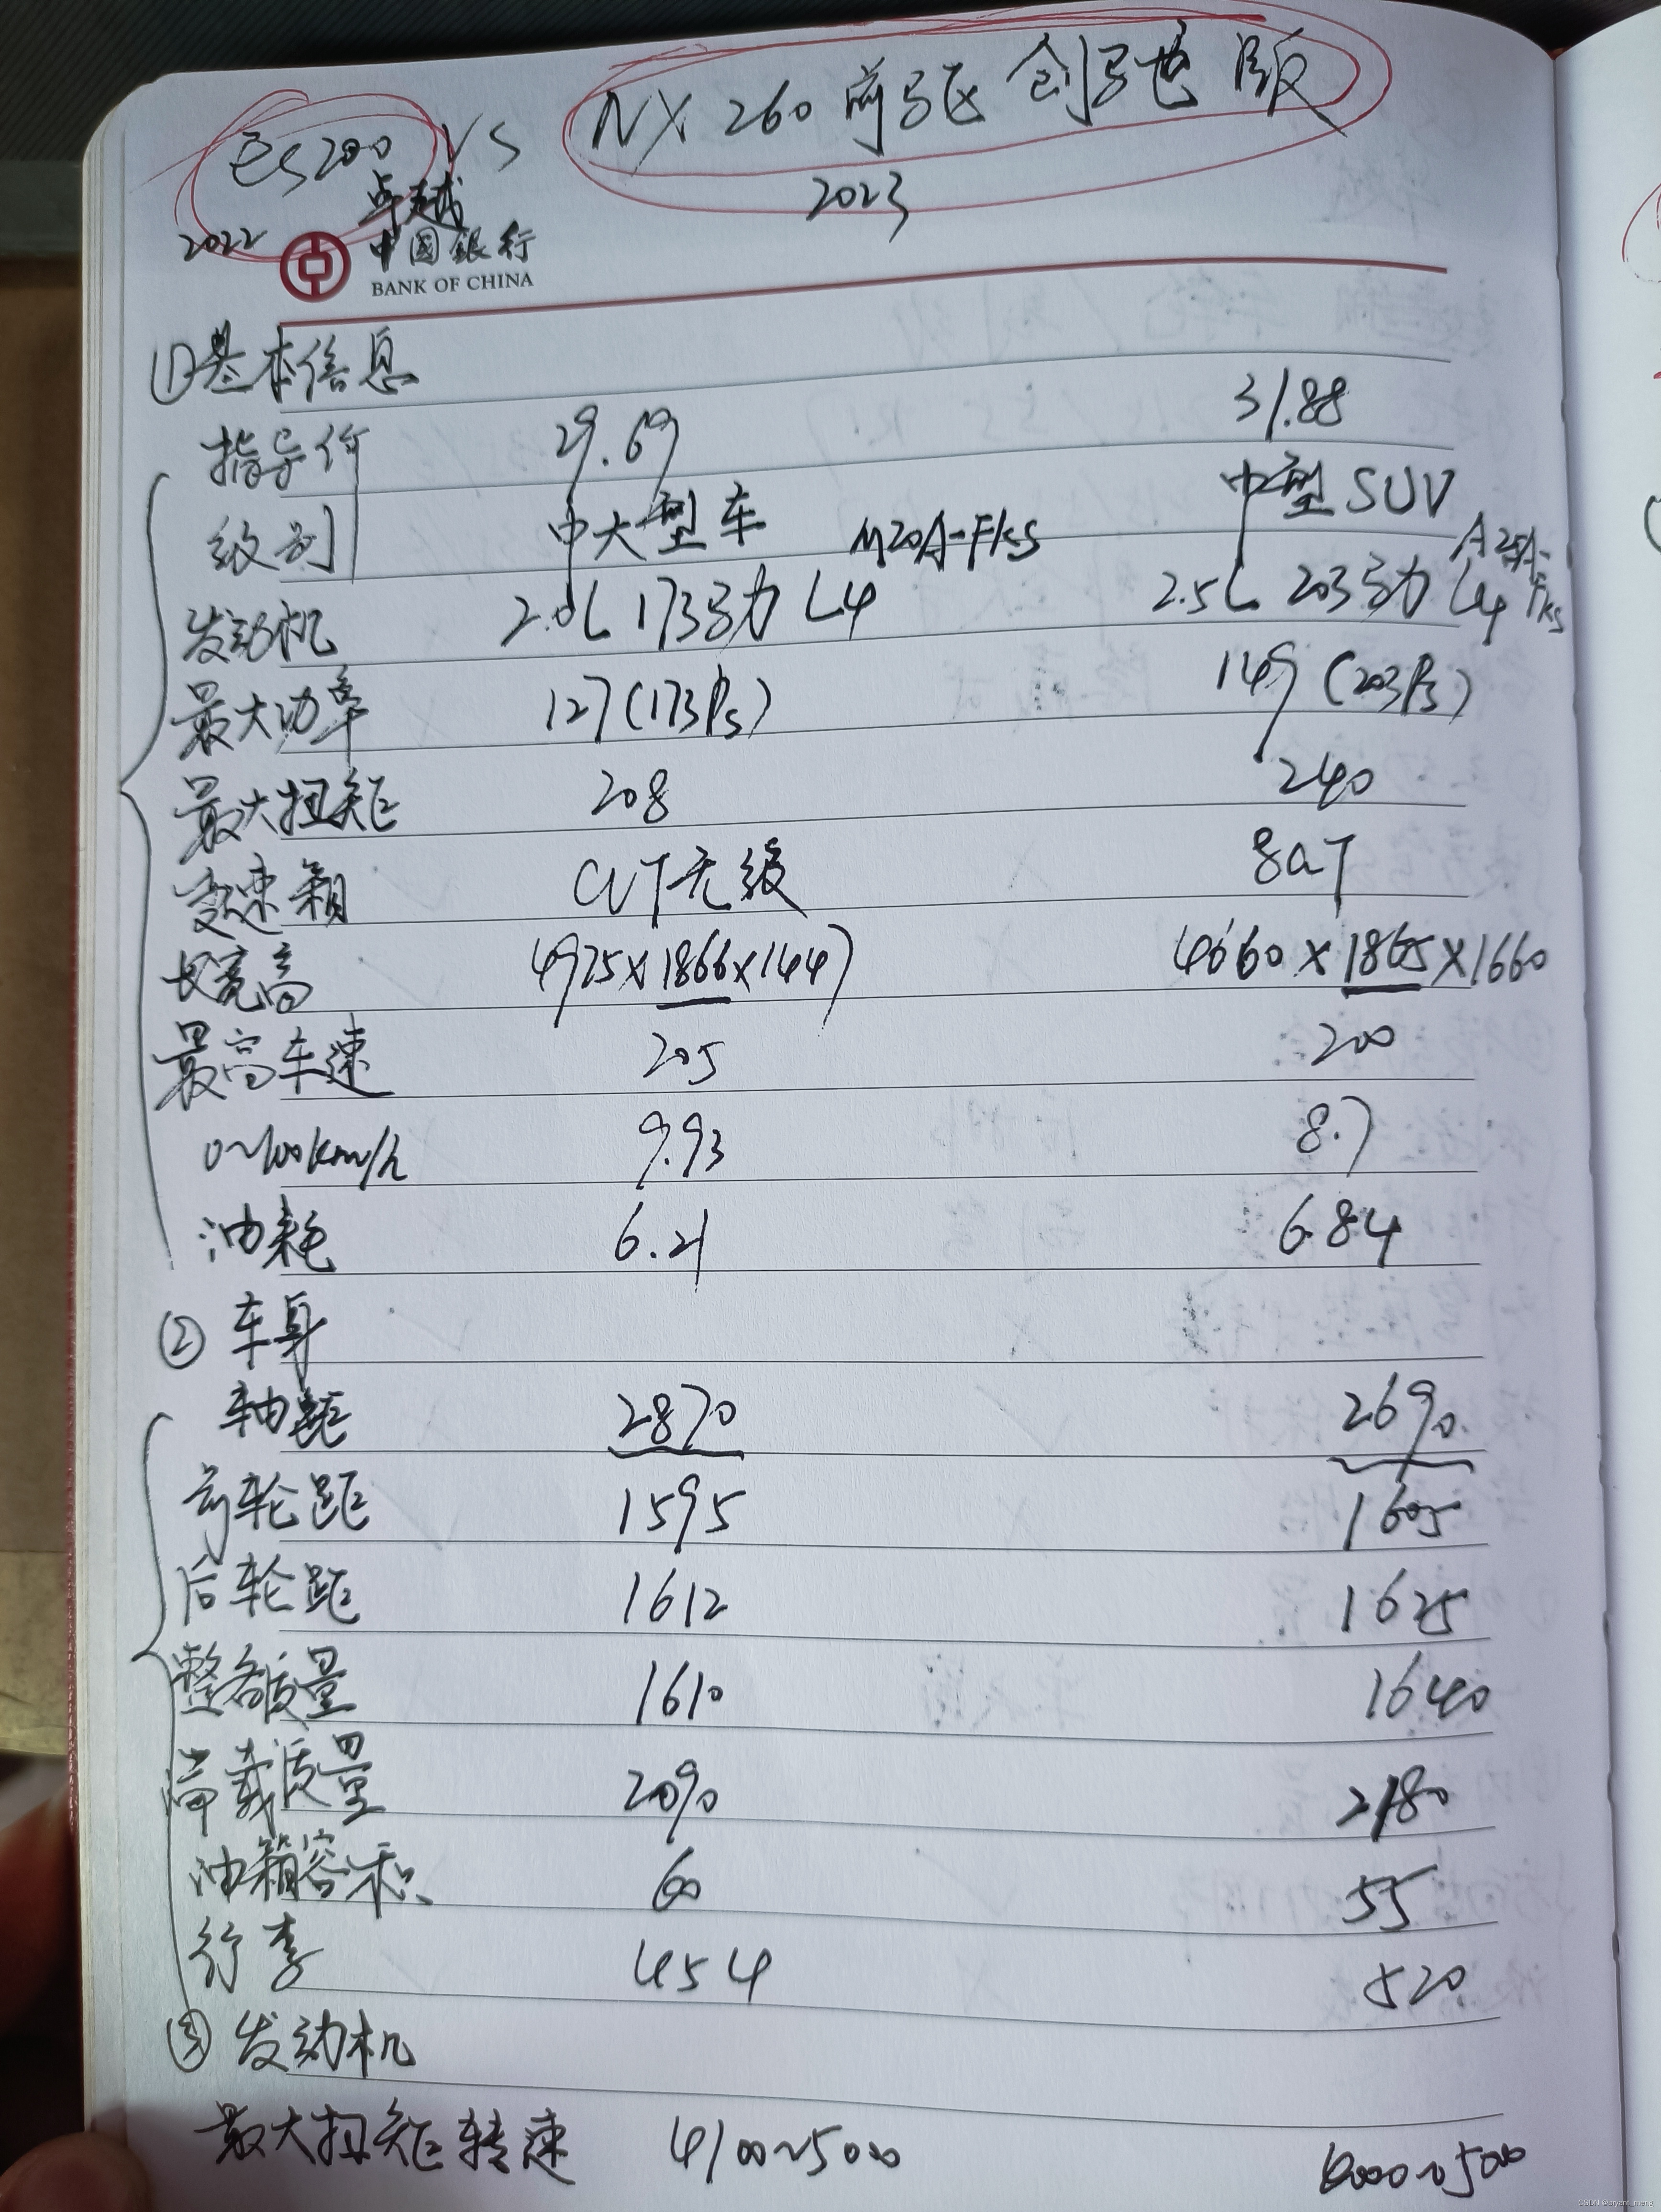 ES200 VS NX 260 前驱 创驰版
卓越
2022
2023
中国銀行
BANK OF CHINA
①基本信息
指导价 29.69 31.88
级别 中大型车 中型SUV
M20A-FKS A25A-FKS
发动机 2.0L 173马力 L4 2.5L 203马力 L4
最大功率 127(173Ps) 149(203Ps)
最大扭矩 208 240
变速箱 CVT无级 8aT
长宽高 4975×1866×1447 4660×1865×1660
最高车速 205 200
0~100km/h 9.93 8.7
油耗 6.21 6.84
② 车身
轴距 2870 2690
前轮距 1595 1605
后轮距 1612 1625
整备质量 1610 1640
满载质量 2090 2180
油箱容积 60 55
行李 454 520
③ 发动机
最大扭矩转速 4100~5000 4000~5000
CSDN @bryant_meng